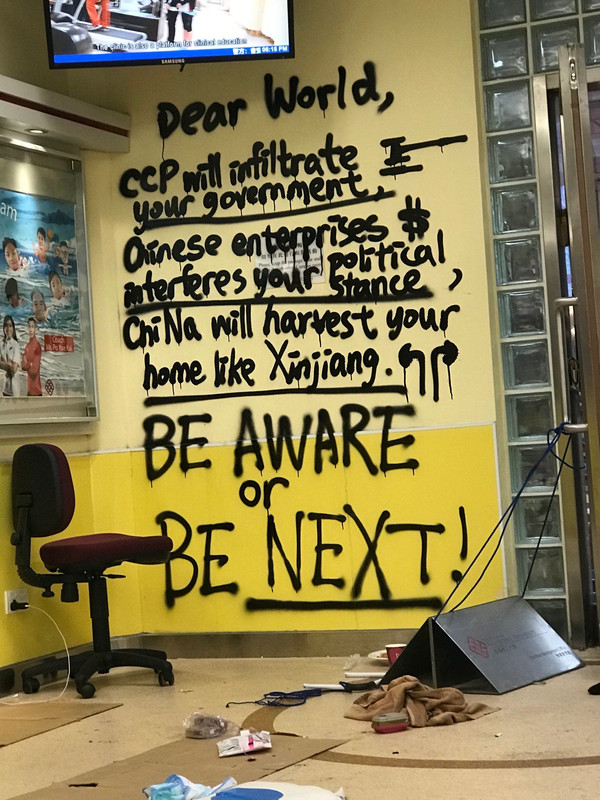 The clinic is also a platform for clinical education
06:18 PM
SAMSUNG
Dear World,
CCP will infiltrate
your government,
Chinese enterprises $
interferes your political
stance,
ChiNa will harvest your
home like Xinjiang.
BE AWARE
or
BE NEXT!
am
Coach